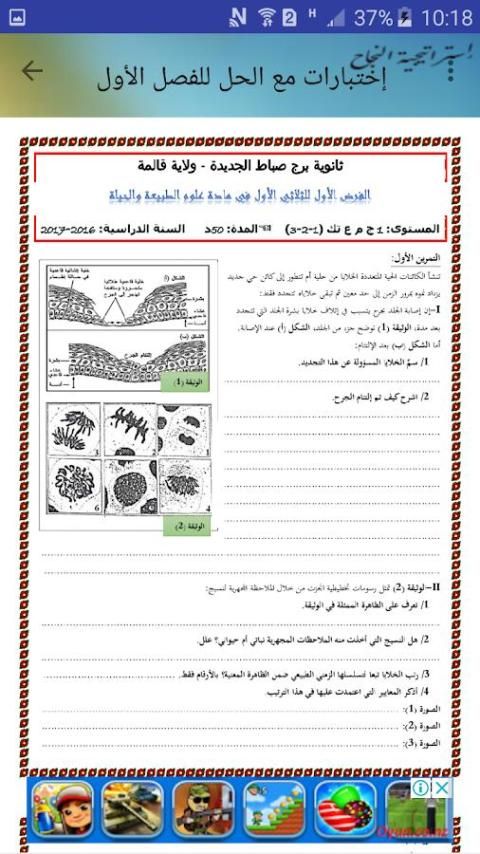 37% 10:18
إستراتيجية النجاح
إختبارات مع الحل للفصل الأول
ثانوية برج صباط الجديدة - ولاية قالمة
الفرض الأول للثلاثي الأول في مادة علوم الطبيعة والحياة
المستوى: 1 ج م ع تك (1-2-3) المدة: 50د السنة الدراسية: 2016-2017
التمرين الأول:
تنشأ الكائنات الحية المتعددة الخلايا من خلية أم تتطور إلى كائن حي جديد
يزداد نموه بمرور الزمن إلى حد معين ثم تبقى خلاياه تتجدد فقط:
I-إن إصابة الجلد بجرح يتسبب في إتلاف خلايا بشرة الجلد التي تتجدد
بعد مدة، الوثيقة (1) توضح جزء من الجلد، الشكل (أ) عند الإصابة،
أما الشكل (ب) بعد الإلتئام:
1/ سمّ الخلايا المسؤولة عن هذا التجديد.
2/ اشرح كيف تم إلتئام الجرح.
الشكل (أ)
بشرة
أدمة
الشكل (ب)
إلتئام الجرح
بشرة
أدمة
الوثيقة (1)
3
6
الوثيقة (2)
II-الوثيقة (2) تمثل رسومات تخطيطية أنجزت من خلال الملاحظة المجهرية لنسيج:
1/ تعرف على الظاهرة الممثلة في الوثيقة.
2/ هل النسيج التي أخذت منه الملاحظات المجهرية نباتي أم حيواني؟ علل.
3/ رتب الخلايا تبعا لتسلسلها الزمني الطبيعي ضمن الظاهرة المعنية؟ بالأرقام فقط.
4/ أذكر المعايير التي اعتمدت عليها في هذا الترتيب.
الصورة (1):
الصورة (2):
الصورة (3):